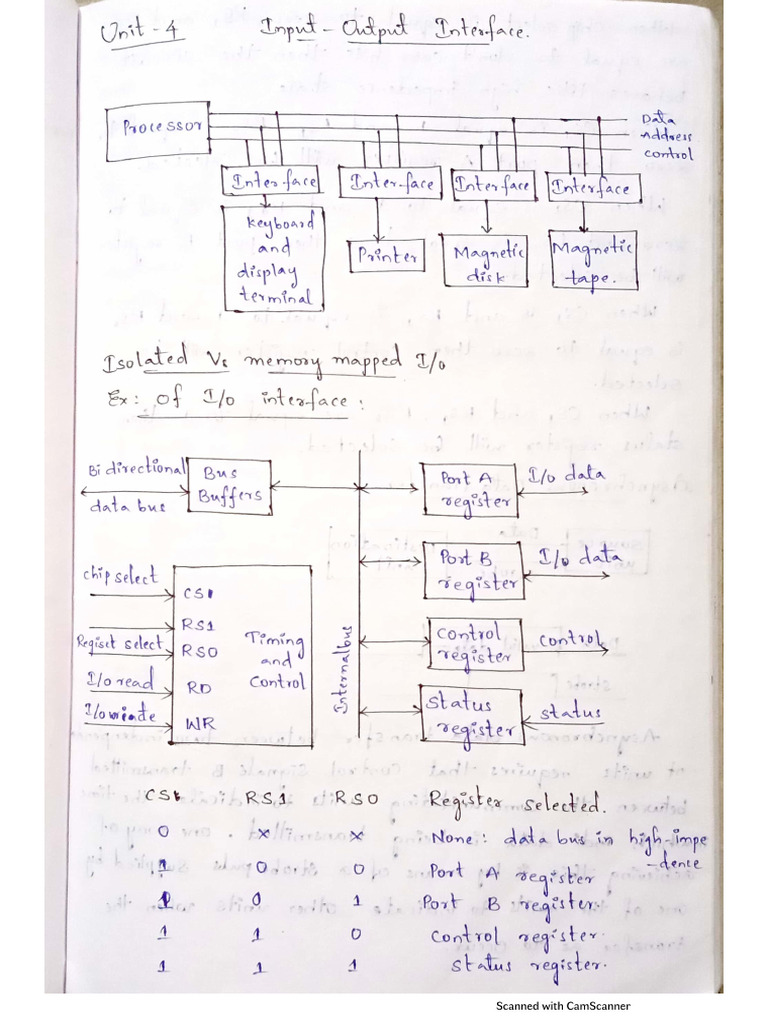 Unit - 4 Input - Output Interface.
Processor
Data
Address
control
Interface Interface Interface Interface
keyboard
and
display
terminal
Printer
Magnetic
disk
Magnetic
tape.
Isolated Vs memory mapped I/o
Ex: of I/o interface:
Bi directional
data bus
Bus
Buffers
Port A
register
I/o data
Port B
register
I/o data
chip select
CS1
RS1
Regisct select
RS0
I/o read
RD
WR
Timing
and
Control
Internal bus
Control
register
control
Status
register
status
CS1 RS1 RS0 Register selected.
0 x x None: data bus in high-impe
-dence
1 0 0 Port A register
1 0 1 Port B register.
1 1 0 control register.
1 1 1 Status register.
Scanned with CamScanner